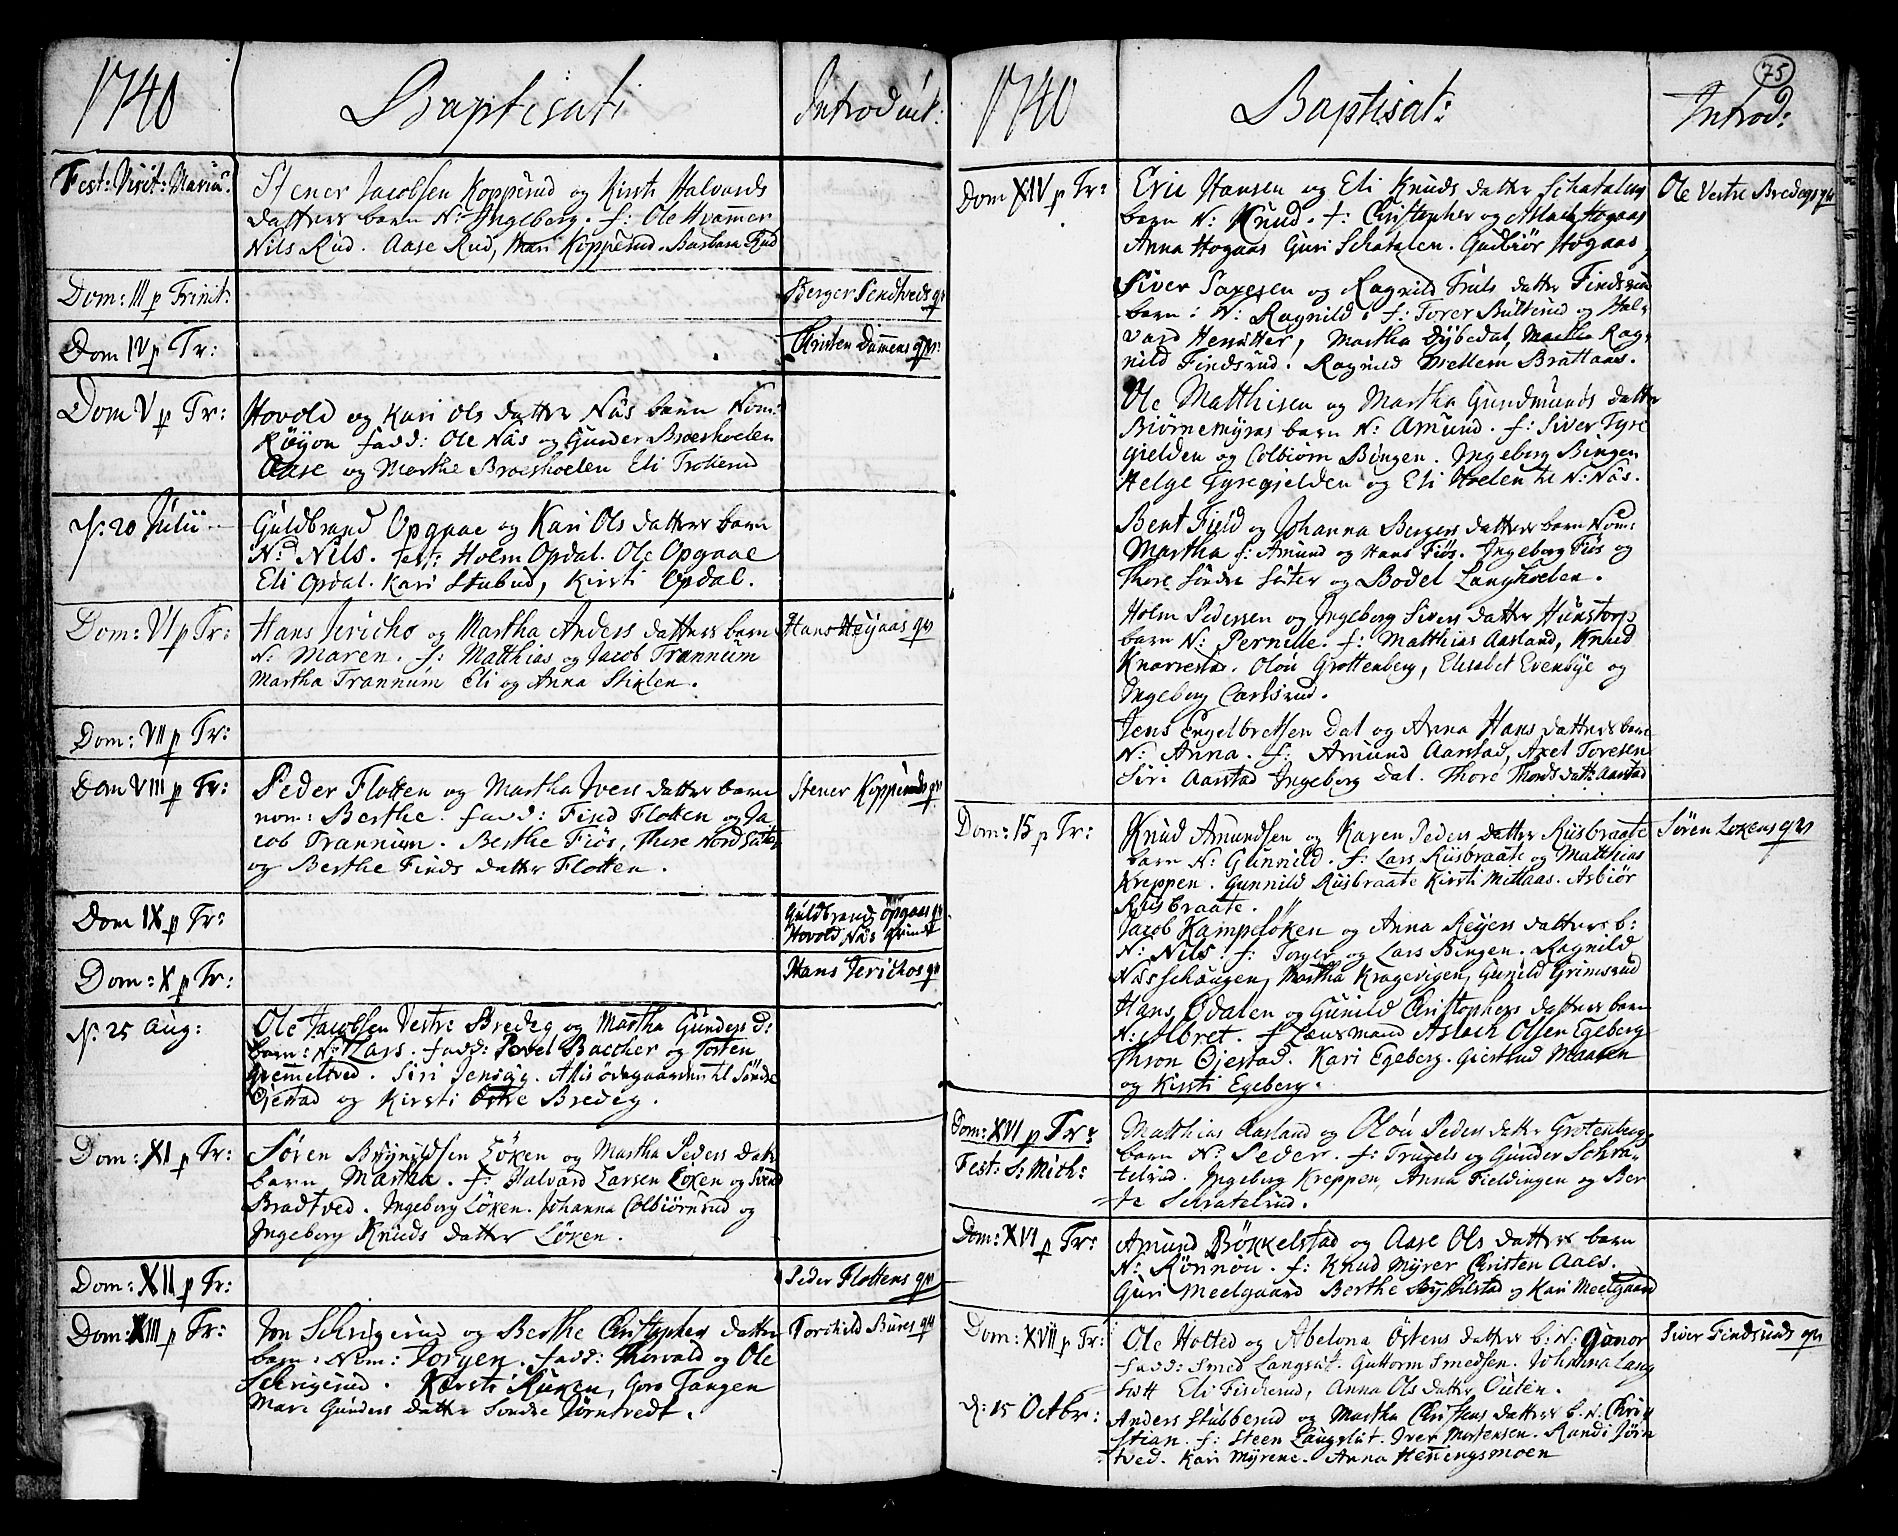 1740
Baptisati
Introduct:
Fest: Visit: Mariæ.
Stener Jacobsen Kopperud og Kirsti Halvords
datters barn N: Ingleberg. f: Ole Hvammer
Nils Rud. Aase Rud, Mari Kopperud. Barbara Rud
Dom: III p Trinit:
Berger Tendtveds qv
Dom IV p Tr:
Christen Dammens qvs:
Dom V p Tr:
Hovold og Kari Ols datter Näs barn Nom:
Røyon fadd: Ole Näs og Gunder Broeshoelen
Aase og Marthe Broeshoelen Eli Trollerud
N: 20 Julii
Guldbrand Opgaae og Kari Ols datters barn
N: Nils. test: Holm Opdal. Ole Opgaae
Eli Opdal. Kari Stubud, Kirsti Opdal.
Dom: VI p Tr:
Hans Jericho og Martha Anders datters barn
N: Maren. f: Matthias og Jacob Trannum
Martha Trannum Eli og Anna Stixlen.
Hans Heyaas qv
Dom: VII p Tr:
Dom VIII p Tr:
Peder Flotten og Martha Ivers datters barn
nom: Berthe. fadd: Find Flotten og Ja
cob Trannum. Berthe Fiøs, Thore Nordsäter
og Berthe Finds datter Flotten.
Stener Kopperuds qv
Dom IX p Tr:
Guldbrand Opgaas qv
Hovold Näs qvinde
Dom: X p Tr:
Hans Jerichos qv
N: 25 Aug:
Ole Jacobsen Vestre Bredeg og Martha Gunders d:
barn: N: Lars. fadd: Povel Baccher og Torsten
Gremmeltved. Siri Jensegg. Allis Ødegaarden til Søndre
Øjestad og Kirsti Østre Bredeg.
Dom: XI p Tr:
Søren Brynildsen Löken og Martha Peders Datt:
barn, Martha. f: Halvard Larsen Löken og Svend
Bradtved. Ingeborg Löken. Johanna Colbiørnsrud og
Ingeberg Knuds datter Löken.
Dom: XII p Tr:
Peder Flottens qv
Dom: XIII p Tr:
Jon Schrigerud og Berthe Christophers datter
barn: Nom: Jorgen. fadd: Thorvald og Ole
Schrigerud. Kirsti Ruken, Goro Tangen
Mari Gunders datter Søndre Jørntvedt.
Torchild Bures qv
75
1740
Baptisat:
Introd:
Dom XIV p Tr:
Eric Hansen og Eli Knuds datter Schatalens
barn N: Knud. f: Christopher og Aslach Hogaas
Anna Hogaas Guri Schatalen. Gudbiör Hogaas
Ole Vestre Bredegs qv
Siver Saxesen og Ragnild Truls datter Findsrud
barn: N: Ragnild. f: Torer Bulterud og Hal-
vard Hensitter, Martha Dybedal, Martha Rag-
nild Findsrud. Ragnild Mellem Brattaas.
Ole Matthisen og Martha Gundmunds datter
Biørnemyrs barn N: Amund. f: Siver Tyre
gielden og Colbiørn Bingen. Ingeberg Bingen
Helge Tyregielden og Eli Hoelen til N: Näs.
Bent Fjeld og Johanna Bergers datters barn Nom:
Martha f: Amund og Hans Fiøs. Ingeberg Fiøs og
Thore Søndre Säter og Bodel Langhoelen.
Holm Pedersen og Ingeberg Sivers datter Hunstorps
barn N: Pernille. f: Matthias Aasland, Knud
Knarrestad. Olou Grottenberg, Elisabet Evenbye og
Ingeberg Carlsrud.
Jens Engelbretsen Dal og Anna Hans datters barn
N: Anna. f: Amund Aarstad, Axel Toresen
Siri Aarstad Ingeberg Dal. Thore Thords datt: Aarstad
Dom: 15 p Tr:
Knud Amundsen og Karen Peders datter Riisbraate
barn N: Gunnild. f: Lars Riisbraate og Matthias
Kreppen. Gunnild Riisbraate Kirsti Mittaas. Asbiør
Riisbraate.
Søren Lökens qvs
Jacob Kampeløken og Anna Reyers datters b:
N: Nils. f: Torger og Lars Bingen. Ragnild
Nässchougen, Martha Kragevigen, Gunild Grimsrud
Hans Ødalen og Gunild Christophers datters barn
N: Albret. f Lensmand Aslach Olsen Egeberg
Thron Øjestad. Kari Egeberg. Giertrud Maasen
og Kirsti Egeberg.
Dom: XVI p Tr:
Fest: S: Mich:
Matthias Aasland og Olou Peders datter Grotenbergs
barn N: Peder. f: Trugels og Gunder Schra-
telrud. Ingeberg Kreppen, Anna Fieldingen og Ber
te Schratelrud.
Dom: XVI p Tr:
Amund Bökkelstad og Aase Ols datters barn
N: Rönnou. f: Knud Myrer Christen Aals.
Guri Meelgaard Berthe Bykkelstad og Kari Meelgaard
Dom: XVII p Tr:
Ole Holted og Abelona Østens datters b: N: Gunor
fadd: Smed Langslet. Guttorm Smedsen. Johanna Lang
slett Eli Fischerud, Anna Ols datter Outen.
Siver Findsruds qv
d: 15 Octbr:
Anders Stubberud og Martha Christens datters b: N: Chri
stian. f: Steen Langslet. Iver Mortensen. Randi Jörn
tved. Kari Myrene. Anna Henningsmoen